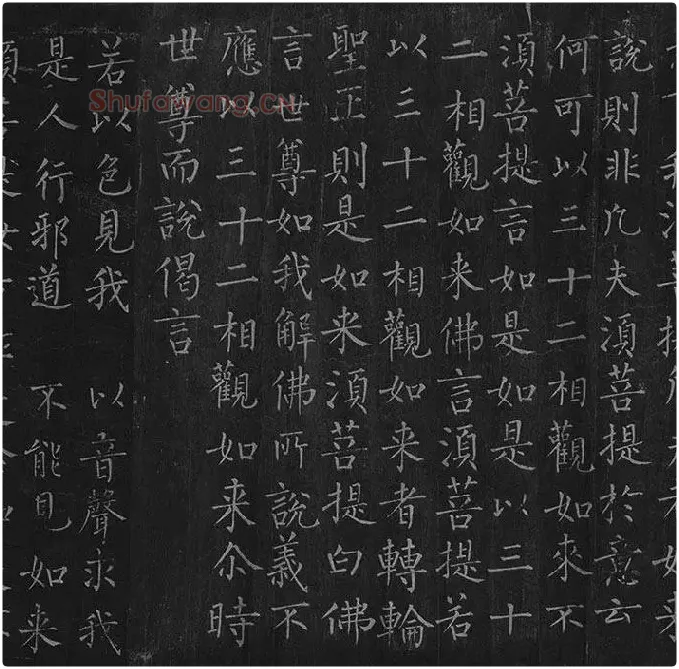 說則非凡夫須菩提於意云
何可以三十二相觀如來不
須菩提言如是如是以三十
二相觀如来佛言須菩提若
以三十二相觀如来者轉輪
聖王則是如来須菩提白佛
言世尊如我解佛所說義不
應以三十二相觀如来尒時
世尊而說偈言
若以色見我 以音聲求我
是人行邪道 不能見如来
Shufawang.CN